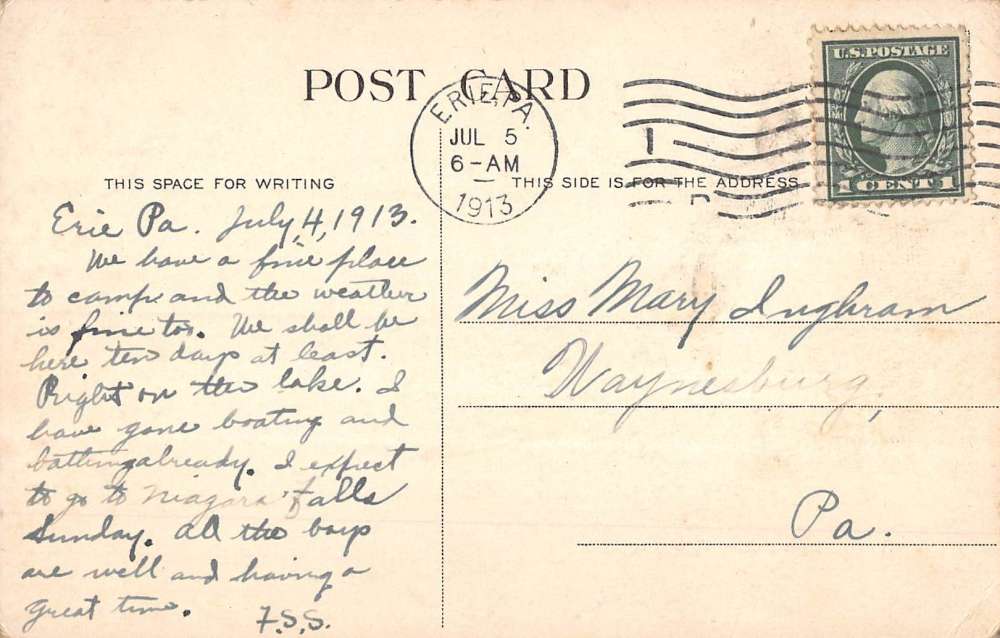 POST CARD
ERIE, PA.
JUL 5
6-AM
1913
U.S. POSTAGE
1 CENT 1
THIS SPACE FOR WRITING
THIS SIDE IS FOR THE ADDRESS
Erie Pa. July, 4, 1913.
We have a fine place
to camp and the weather
is fine too. We shall be
here ten days at least.
Right on the lake. I
have gone boating and
bathing already. I expect
to go to Niagara Falls
Sunday. All the boys
are well and having a
great time.
F.S.S.
Miss Mary Inghram
Waynesburg,
Pa.